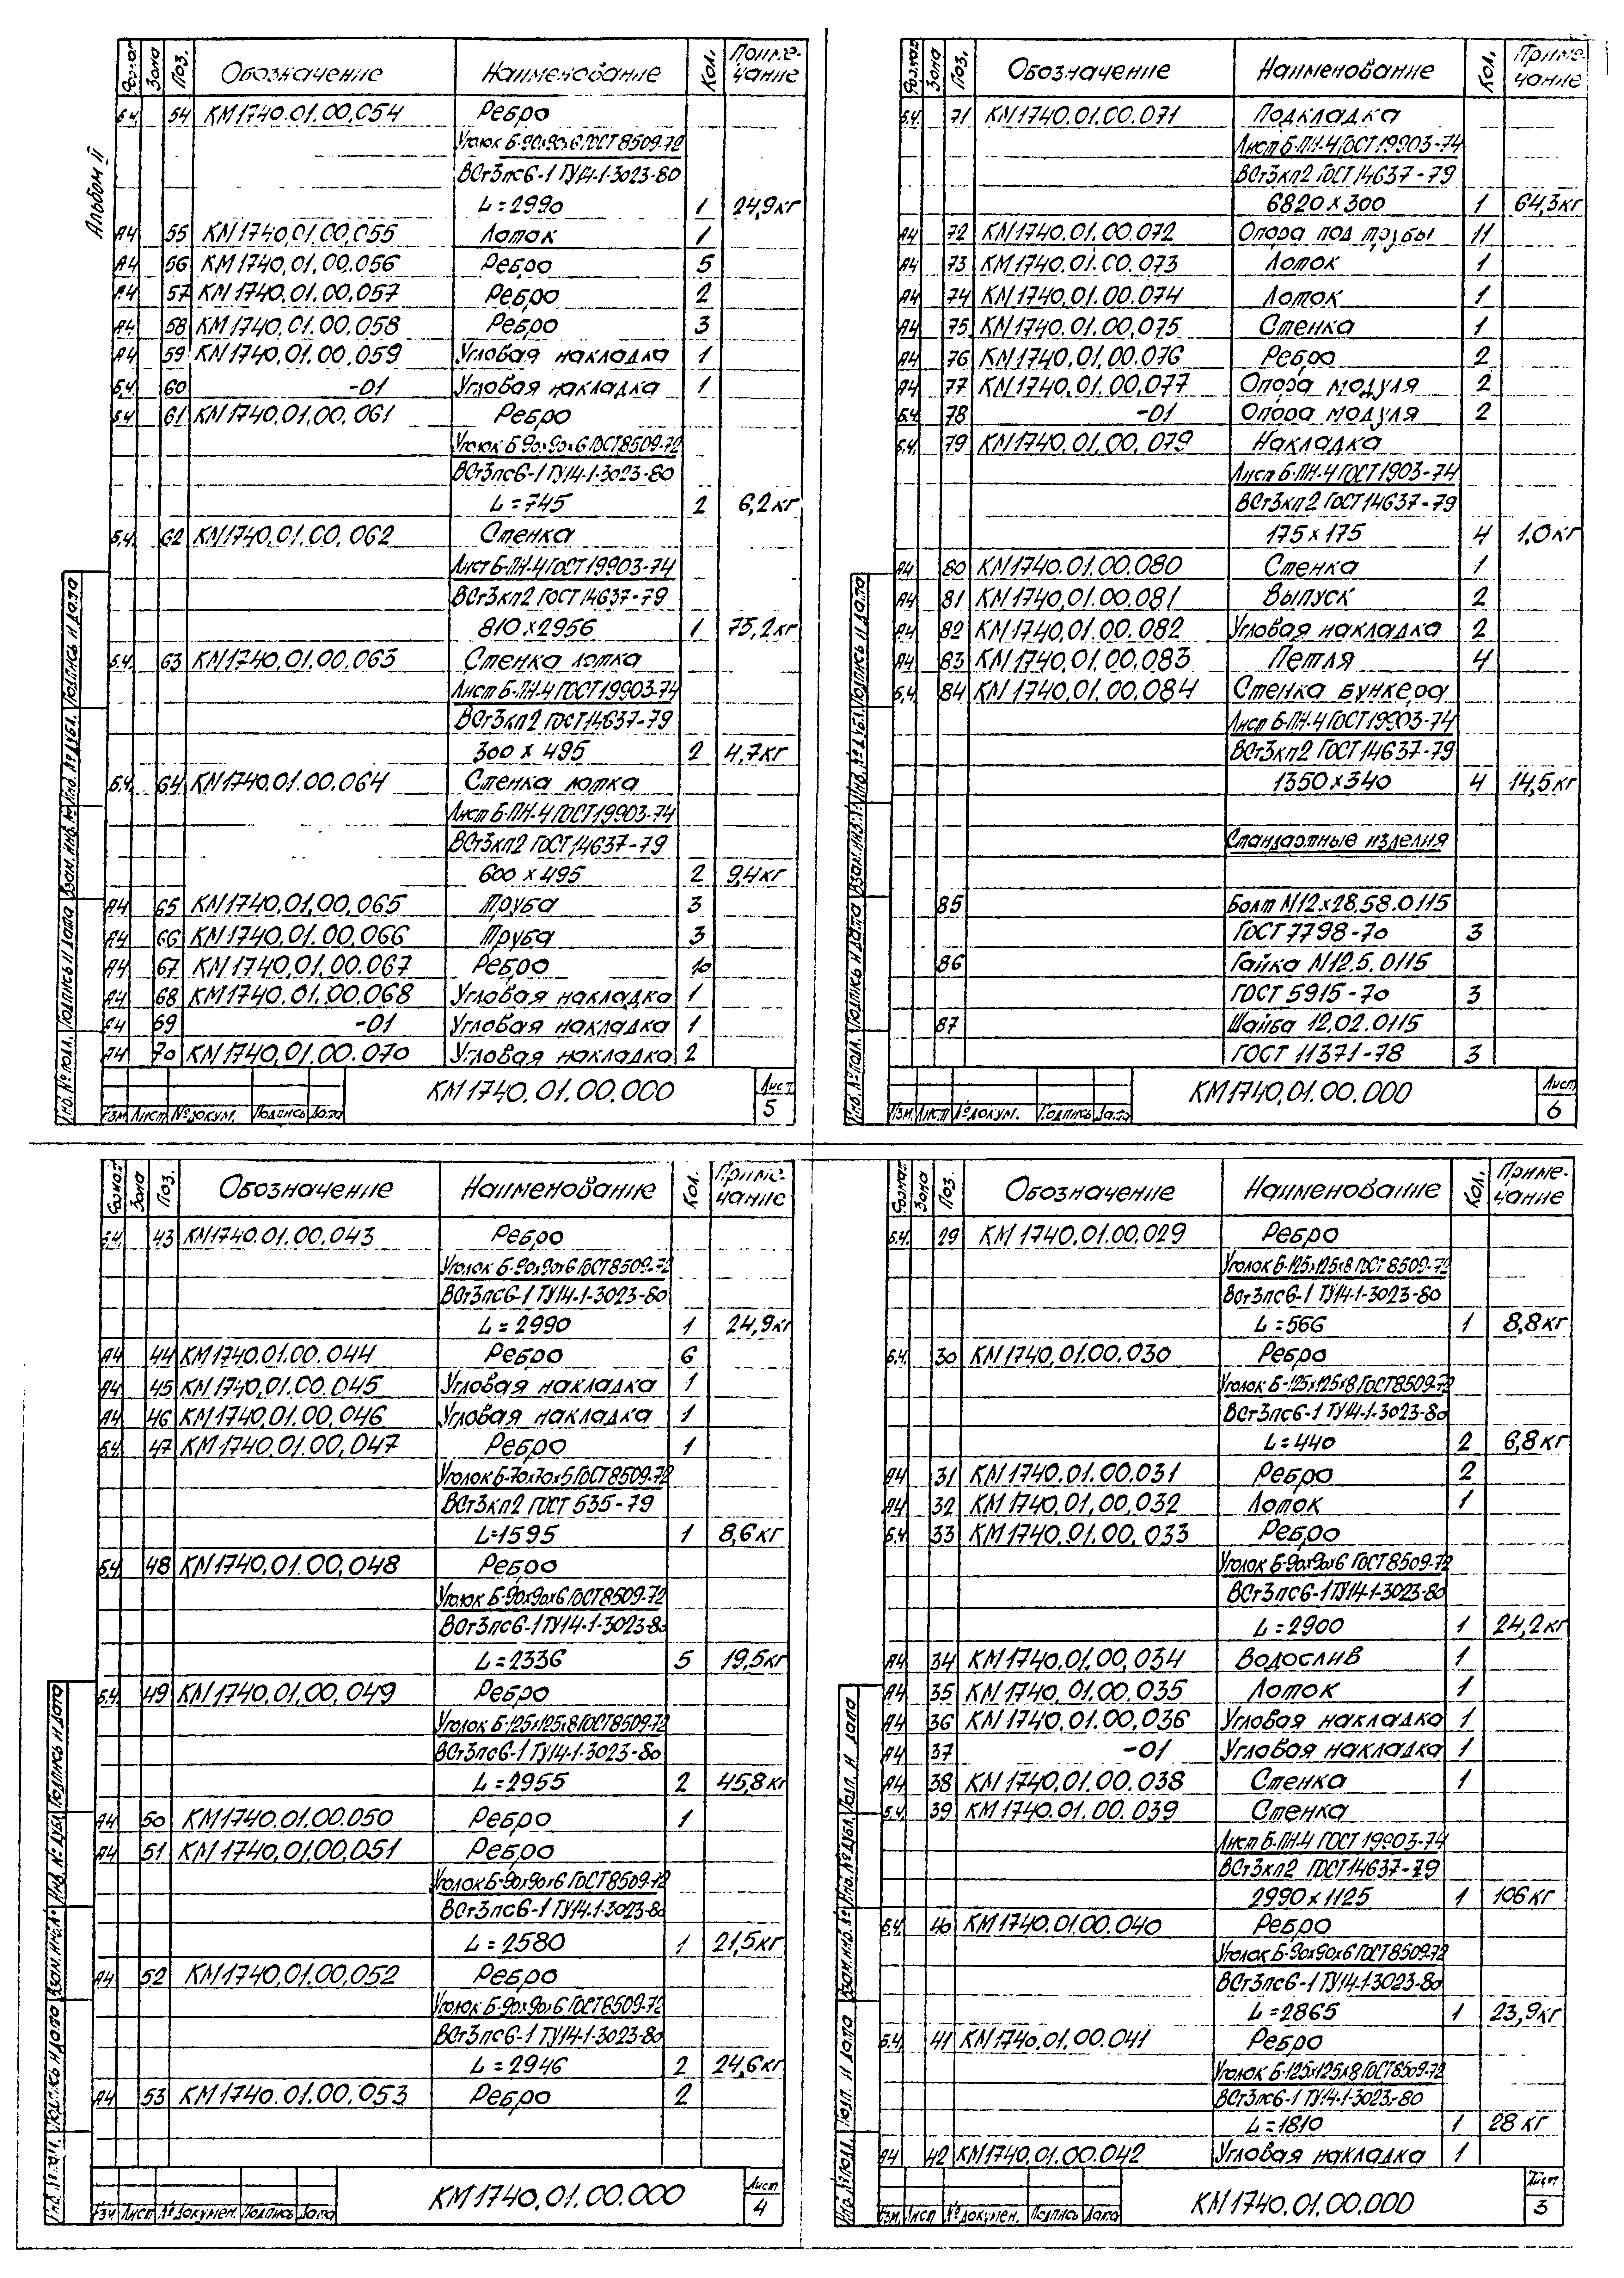 Альбом II
Формат Зона Поз. Обозначение Наименование Кол. Приме-чание
Б.Ч. 54 КМ1740.01.00.054 Ребро
Уголок Б-90х90х6 ГОСТ 8509-72
ВСт3пс6-1 ТУ14-1-3023-80
L=2990 1 24,9кг
А4 55 КМ1740.01.00.055 Лоток 1
А4 56 КМ1740.01.00.056 Ребро 5
А4 57 КМ1740.01.00.057 Ребро 2
А4 58 КМ1740.01.00.058 Ребро 3
А4 59 КМ1740.01.00.059 Угловая накладка 1
Б.Ч. 60 -01 Угловая накладка 1
Б.Ч. 61 КМ1740.01.00.061 Ребро
Уголок Б-90х90х6 ГОСТ 8509-72
ВСт3пс6-1 ТУ14-1-3023-80
L=745 2 6,2кг
Б.Ч. 62 КМ1740.01.00.062 Стенка
Лист Б-ПН-4 ГОСТ 19903-74
ВСт3кп2 ГОСТ 14637-79
810х2956 1 75,2кг
Б.Ч. 63 КМ1740.01.00.063 Стенка лотка
Лист Б-ПН-4 ГОСТ 19903-74
ВСт3кп2 ГОСТ 14637-79
300 х 495 2 4,7кг
Б.Ч. 64 КМ1740.01.00.064 Стенка лотка
Лист Б-ПН-4 ГОСТ 19903-74
ВСт3кп2 ГОСТ 14637-79
600 х 495 2 9,4кг
А4 65 КМ1740.01.00.065 Труба 3
А4 66 КМ1740.01.00.066 Труба 3
А4 67 КМ1740.01.00.067 Ребро 10
А4 68 КМ1740.01.00.068 Угловая накладка 1
А4 69 -01 Угловая накладка 1
А4 70 КМ1740.01.00.070 Угловая накладка 2
Инв.№ подл. Подпись и дата Взам.инв.№ Инв.№ дубл. Подпись и дата
Изм. Лист № докум. Подпись Дата
КМ1740.01.00.000
Лист 5
Формат Зона Поз. Обозначение Наименование Кол. Приме-чание
Б.Ч. 71 КМ1740.01.00.071 Подкладка
Лист Б-ПН-4 ГОСТ 19903-74
ВСт3кп2 ГОСТ 14637-79
6820х300 1 64,3кг
А4 72 КМ1740.01.00.072 Опора под трубы 11
А4 73 КМ1740.01.00.073 Лоток 1
А4 74 КМ1740.01.00.074 Лоток 1
А4 75 КМ1740.01.00.075 Стенка 1
А4 76 КМ1740.01.00.076 Ребро 2
А4 77 КМ1740.01.00.077 Опора модуля 2
Б.Ч. 78 -01 Опора модуля 2
Б.Ч. 79 КМ1740.01.00.079 Накладка
Лист Б-ПН-4 ГОСТ 1903-74
ВСт3кп2 ГОСТ 14637-79
175х175 4 1.0кг
А4 80 КМ1740.01.00.080 Стенка 1
А4 81 КМ1740.01.00.081 Выпуск 2
А4 82 КМ1740.01.00.082 Угловая накладка 2
А4 83 КМ1740.01.00.083 Петля 4
Б.Ч. 84 КМ1740.01.00.084 Стенка бункера
Лист Б-ПН-4 ГОСТ 19903-74
ВСт3кп2 ГОСТ 14637-79
1350х340 4 14,5кг
Стандартные изделия
85 Болт М12х28.58.0115
ГОСТ 7798-70 3
86 Гайка М12.5.0115
ГОСТ 5915-70 3
87 Шайба 12.02.0115
ГОСТ 11371-78 3
Инв.№ подл. Подпись и дата Взам.инв.№ Инв.№ дубл. Подпись и дата
Изм. Лист № докум. Подпись Дата
КМ1740.01.00.000
Лист 6
Формат Зона Поз. Обозначение Наименование Кол. Приме-чание
Б.Ч. 43 КМ1740.01.00.043 Ребро
Уголок Б-90х90х6 ГОСТ 8509-72
ВСт3пс6-1 ТУ14-1-3023-80
L=2990 1 24,9кг
А4 44 КМ1740.01.00.044 Ребро 6
А4 45 КМ1740.01.00.045 Угловая накладка 1
А4 46 КМ1740.01.00.046 Угловая накладка 1
Б.Ч. 47 КМ1740.01.00.047 Ребро 1
Уголок Б-70х70х5 ГОСТ 8509-72
ВСт3кп2 ГОСТ 535-79
L=1595 1 8,6кг
Б.Ч. 48 КМ1740.01.00.048 Ребро
Уголок Б-90х90х6 ГОСТ 8509-72
ВСт3пс6-1 ТУ14-1-3023-80
L=2336 5 19,5кг
Б.Ч. 49 КМ1740.01.00.049 Ребро
Уголок Б-125х125х8 ГОСТ 8509-72
ВСт3пс6-1 ТУ14-1-3023-80
L=2955 2 45,8кг
А4 50 КМ1740.01.00.050 Ребро 1
А4 51 КМ1740.01.00.051 Ребро
Уголок Б-90х90х6 ГОСТ 8509-72
ВСт3пс6-1 ТУ14-1-3023-80
L=2580 1 21,5кг
А4 52 КМ1740.01.00.052 Ребро
Уголок Б-90х90х6 ГОСТ 8509-72
ВСт3пс6-1 ТУ14-1-3023-80
L=2946 2 24,6кг
А4 53 КМ1740.01.00.053 Ребро 2
Инв.№ подл. Подпись и дата Взам.инв.№ Инв.№ дубл. Подпись и дата
Изм Лист № докумен. Подпись Дата
КМ1740.01.00.000
Лист 4
Формат Зона Поз. Обозначение Наименование Кол. Приме-чание
Б.Ч. 29 КМ1740.01.00.029 Ребро
Уголок Б-125х125х8 ГОСТ 8509-72
ВСт3пс6-1 ТУ14-1-3023-80
L=566 1 8,8кг
Б.Ч. 30 КМ1740.01.00.030 Ребро
Уголок Б-125х125х8 ГОСТ 8509-72
ВСт3пс6-1 ТУ14-1-3023-80
L=440 2 6,8кг
А4 31 КМ1740.01.00.031 Ребро 2
А4 32 КМ1740.01.00.032 Лоток 1
Б.Ч. 33 КМ1740.01.00.033 Ребро
Уголок Б-90х90х6 ГОСТ 8509-72
ВСт3пс6-1 ТУ14-1-3023-80
L=2900 1 24,2кг
А4 34 КМ1740.01.00.034 Водослив 1
А4 35 КМ1740.01.00.035 Лоток 1
А4 36 КМ1740.01.00.036 Угловая накладка 1
А4 37 -01 Угловая накладка 1
А4 38 КМ1740.01.00.038 Стенка 1
Б.Ч. 39 КМ1740.01.00.039 Стенка
Лист Б-ПН-4 ГОСТ 19903-74
ВСт3кп2 ГОСТ 14637-79
2990х1125 1 106кг
Б.Ч. 40 КМ1740.01.00.040 Ребро
Уголок Б-90х90х6 ГОСТ 8509-72
ВСт3пс6-1 ТУ14-1-3023-80
L=2865 1 23,9кг
Б.Ч. 41 КМ1740.01.00.041 Ребро
Уголок Б-125х125х8 ГОСТ 8509-72
ВСт3пс6-1 ТУ14-1-3023-80
L=1810 1 28 кг
А4 42 КМ1740.01.00.042 Угловая накладка 1
Инв.№ подл. Подп. и дата Взам.инв.№ Инв.№ дубл. Подп. и дата
Изм. Лист № докумен. Подпись Дата
КМ1740.01.00.000
Лист 3